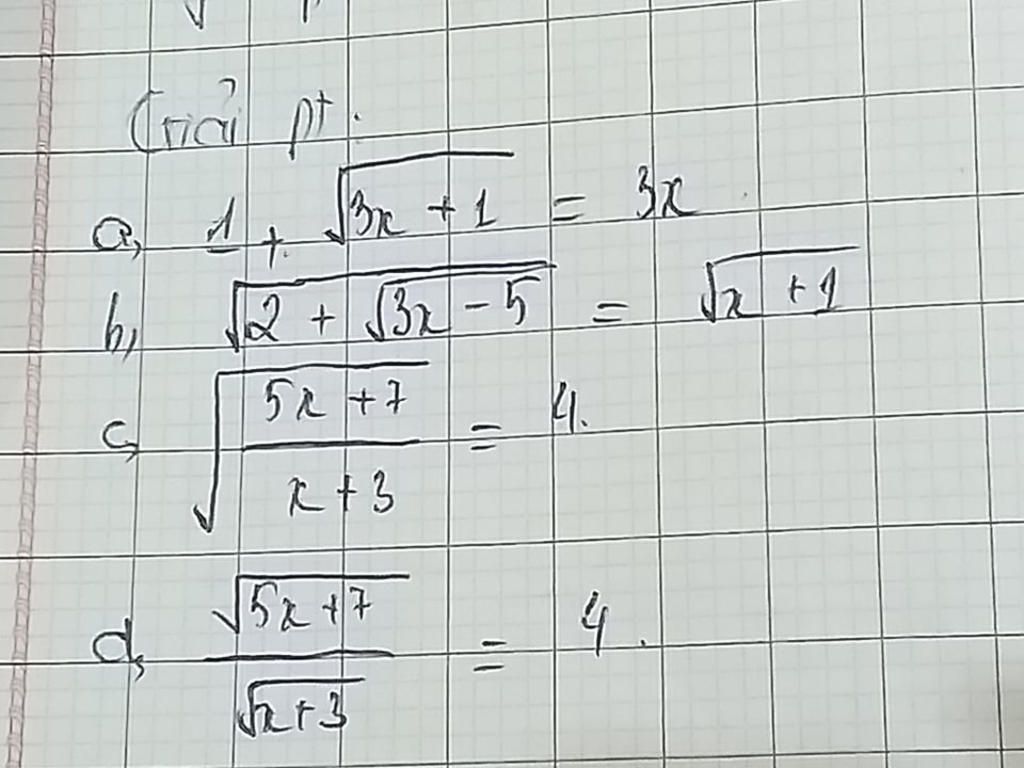 Giải pt:
a, 1 + √(3x + 1) = 3x
b, √(2 + √(3x - 5)) = √(x + 1)
c, √((5x + 7)/(x + 3)) = 4.
d, √(5x + 7)/√(x + 3) = 4.